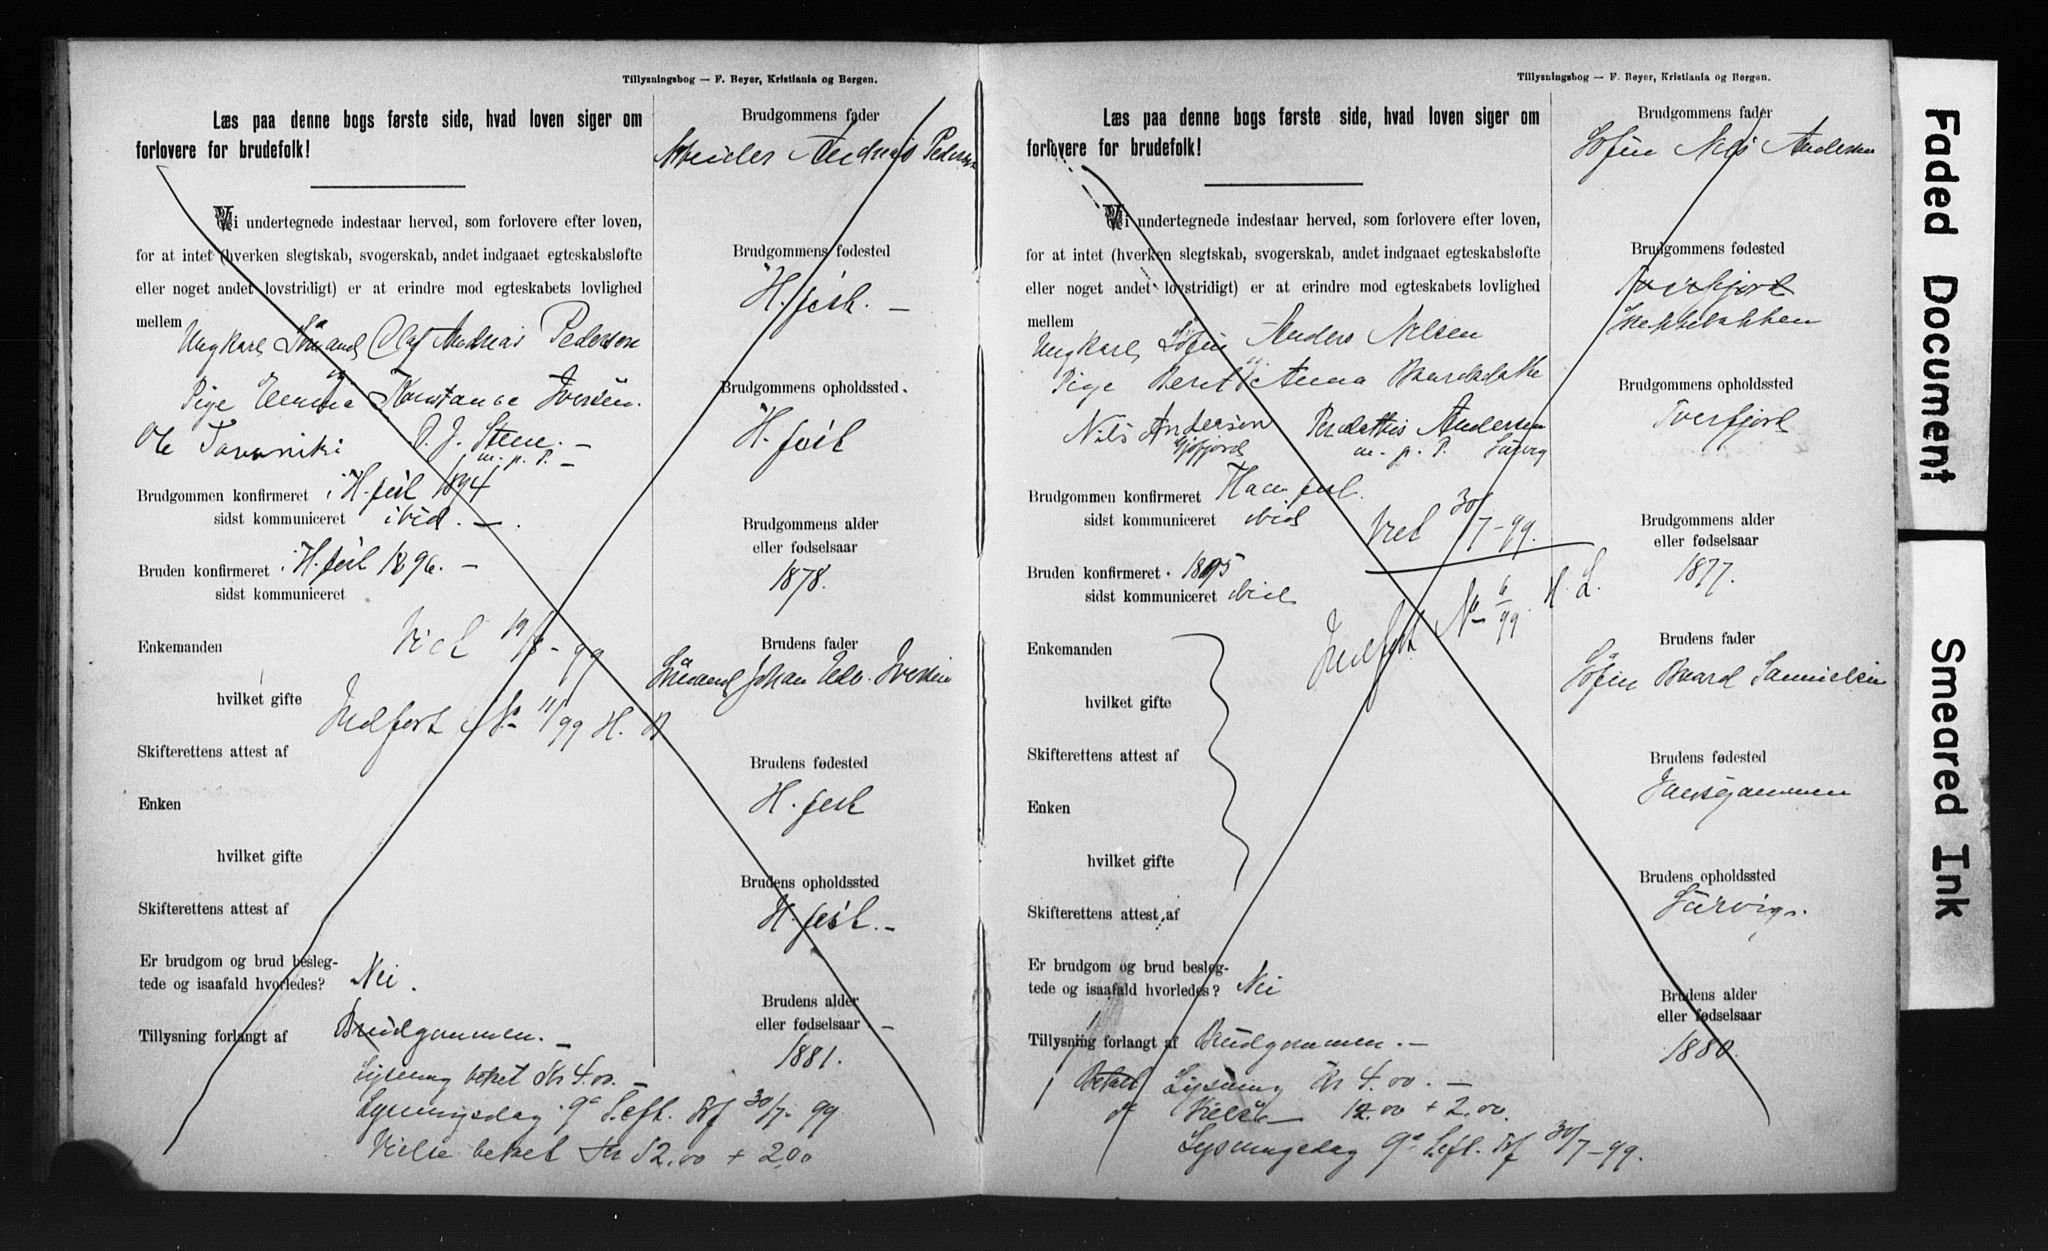 Tillysningsbog — F. Beyer, Kristiania og Bergen.
Læs paa denne bogs første side, hvad loven siger om
forlovere for brudefolk!
Vi undertegnede indestaar herved, som forlovere efter loven,
for at intet (hverken slegtskab, svogerskab, andet indgaaet egteskabsløfte
eller noget andet lovstridigt) er at erindre mod egteskabets lovlighed
mellem
Ungkarl Sømand Olaf Andreas Pedersen
og
Pige Emma Konstance Iversen.
Ole O. J. Stene. —
m. p. P. —
Brudgommen konfirmeret i H.fest 1894
sidst kommuniceret ibid. —
Bruden konfirmeret i H.fest 1896. —
sidst kommuniceret
Enkemanden
Viet 19/8 - 99
hvilket gifte
Indført No 11/99 H.
Skifterettens attest af
Enken
hvilket gifte
Skifterettens attest af
Er brudgom og brud besleg-
tede og isaafald hvorledes? Nei.
Tillysning forlangt af Brudgommen. —
Lysning betalt Kr 4.00. —
Lysningsdag 9a S. eft. Tref 30/7 - 99
Vielse betalt Kr 12.00 + 2,00
Brudgommens fader
Arbeider Andreas Pedersen
Brudgommens fødested
H.fest. —
Brudgommens opholdssted.
H.fest
Brudgommens alder
eller fødselsaar
1878.
Brudens fader
Sømand Johan Edv. Iversen
Brudens fødested
H.fest
Brudens opholdssted
H.fest. —
Brudens alder
eller fødselsaar —
1881.
Tillysningsbog — F. Beyer, Kristiania og Bergen.
Læs paa denne bogs første side, hvad loven siger om
forlovere for brudefolk!
Vi undertegnede indestaar herved, som forlovere efter loven,
for at intet (hverken slegtskab, svogerskab, andet indgaaet egteskabsløfte
eller noget andet lovstridigt) er at erindre mod egteskabets lovlighed
mellem
Ungkarl Søfin Anders Nilsen
og
Pige Berit Anna Baardsdatter
Nils Andersen Andersen
m. p. P.
Brudgommen konfirmeret Ham.fest.
sidst kommuniceret ibid
Viet 30/7 - 99.
Bruden konfirmeret 1895
sidst kommuniceret ibid
Indført No 6/99. H. L.
Enkemanden
hvilket gifte
Skifterettens attest af
Enken
hvilket gifte
Skifterettens attest af
Er brudgom og brud besleg-
tede og isaafald hvorledes? Nei
Tillysning forlangt af Brudgommen. —
Betalt Lysning Kr 4.00. —
Vielse 12.00 + 2,00.
Lysningsdag 9a S. eft. Tref 30/7 - 99.
Brudgommens fader
Søfin Nils Andersen
Brudgommens fødested
Tverfjord
Brudgommens opholdssted
Tverfjord
Brudgommens alder
eller fødselsaar
1877.
Brudens fader
Søfin Baard Samuelsen
Brudens fødested
Brudens opholdssted
Brudens alder
eller fødselsaar
1880.
Faded Document
Smeared Ink